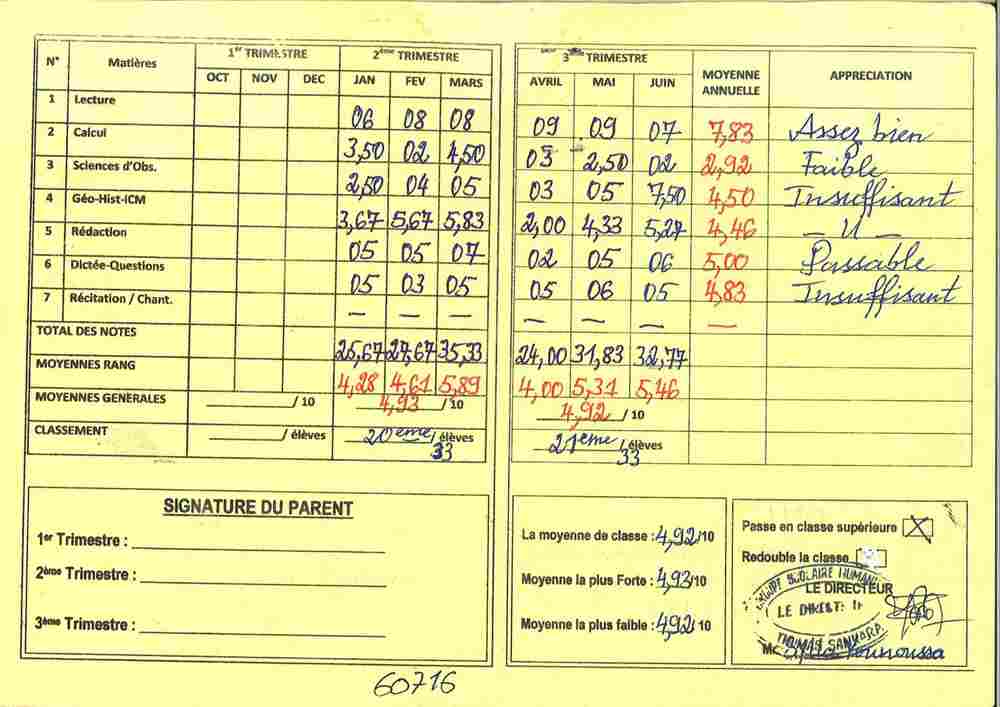 N° Matières 1er TRIMESTRE 2ème TRIMESTRE
OCT NOV DEC JAN FEV MARS
1 Lecture 06 08 08
2 Calcul 3,50 02 4,50
3 Sciences d'Obs. 2,50 04 05
4 Géo-Hist-ICM 3,67 5,67 5,83
5 Rédaction 05 05 07
6 Dictée-Questions 05 03 05
7 Récitation / Chant. — — —
TOTAL DES NOTES 25,67 27,67 35,33
MOYENNES RANG 4,28 4,61 5,89
MOYENNES GENERALES ________/ 10 4,93 / 10
CLASSEMENT ________/ élèves 20ème / élèves
33
3ème TRIMESTRE MOYENNE ANNUELLE APPRECIATION
AVRIL MAI JUIN
09 09 07 7,83 Assez bien
03 2,50 02 2,92 Faible
03 05 7,50 4,50 Insuffisant
2,00 4,33 5,27 4,46 — 11 —
02 05 06 5,00 Passable
05 06 05 4,83 Insuffisant
— — — —
24,00 31,83 32,77
4,00 5,31 5,46
4,92 / 10
21ème / élèves
33
SIGNATURE DU PARENT
1er Trimestre : ________
2ème Trimestre : ________
3ème Trimestre : ________
La moyenne de classe : 4,92/10
Moyenne la plus Forte : 4,93/10
Moyenne la plus faible : 4,92/ 10
Passe en classe supérieure X
Redouble la classe
LE DIRECTEUR
SCOLAIRE
THOMAS SANKARA
60716